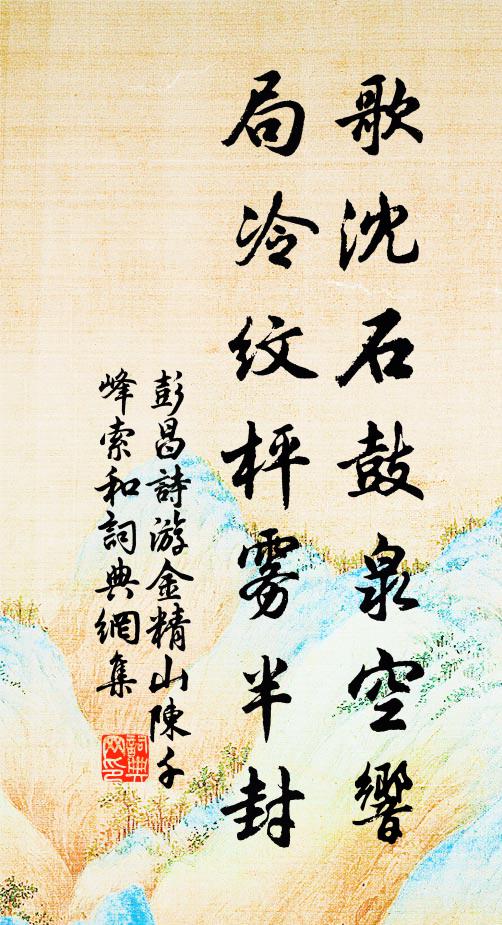 歌沈石鼓泉空響
局冷紋枰雾半封
彭昌詩游金精山陳千
峰索和詞典網集
詞典网印